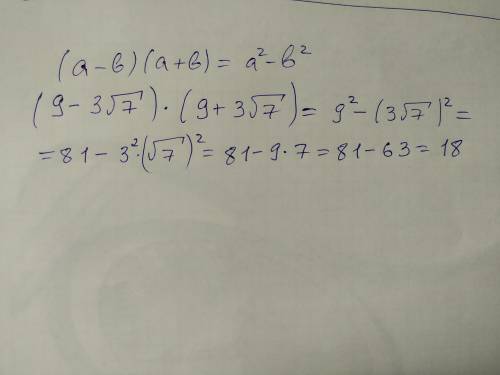 (a-в)(a+в) = a²-в²
(9-3√7)·(9+3√7) = 9²-(3√7)² =
= 81-3²·(√7)² = 81-9·7 = 81-63 = 18